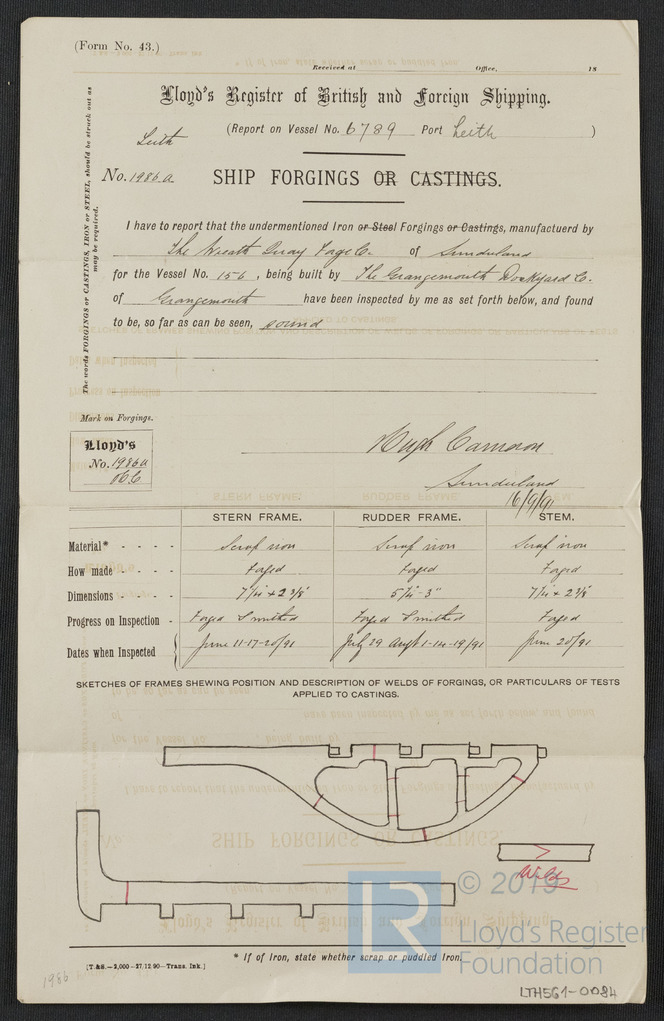 (Form No. 43.)
Received at Office, 18
Lloyd's Register of British and Foreign Shipping.
(Report on Vessel No. 6789 Port Leith )
Leith
No. 1986a SHIP FORGINGS OR CASTINGS.
The words FORGINGS or CASTINGS, IRON or STEEL, should be struck out as may be required.
I have to report that the undermentioned Iron or Steel Forgings or Castings, manufactuerd by
The Wreath Quay Forge Co. of Sunderland
for the Vessel No. 156, being built by The Grangemouth Dockyard Co.
of Grangemouth have been inspected by me as set forth below, and found
to be, so far as can be seen, sound
Mark on Forgings.
Lloyd's
No. 1986a
HC
Hugh Cameron
Sunderland
16/9/91
STERN FRAME. RUDDER FRAME. STEM.
Material* - - - - Scrap iron Scrap iron Scrap iron
How made - - - - Forged Forged Forged
Dimensions - - - -
Progress on Inspection - Forged & smithed Forged & smithed Forged
Dates when Inspected June 11-17-20/91 July 29 Augt 1-14-19/91 June 20/91
SKETCHES OF FRAMES SHEWING POSITION AND DESCRIPTION OF WELDS OF FORGINGS, OR PARTICULARS OF TESTS
APPLIED TO CASTINGS.
Welds
© 2019
LR
Lloyd's Register
Foundation
* If of Iron, state whether scrap or puddled Iron.
[T.&S.—2,000—27/12/90—Trans. Ink.]
1986
LTH561-0084